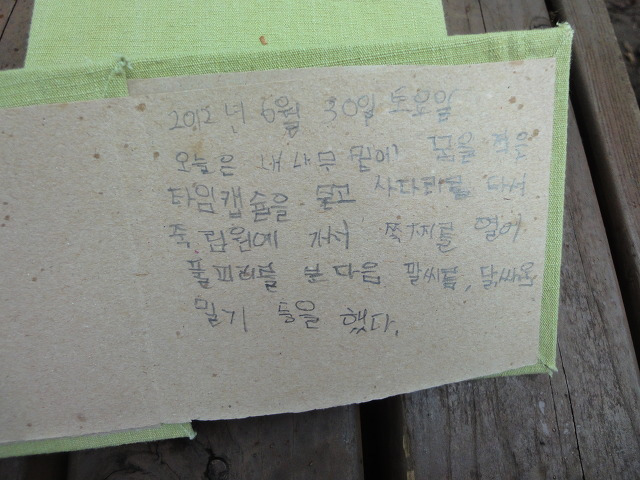 2012년 6월 30일 토요일
오늘은 내 나무 밑에 몸을
타임캡슐을 묻고 사다리를 타서
죽림원에 가서 쪽지를 열어
풀피리를 본 다음 말씨름, 닭싸움
밀기 등을 했다.